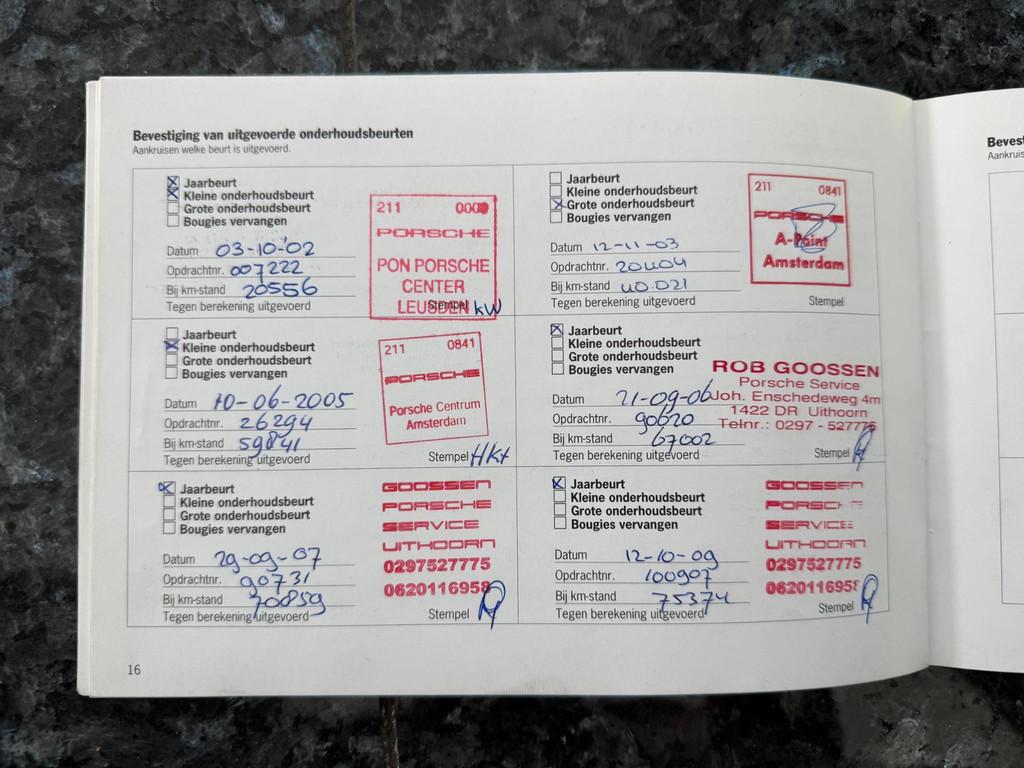 Bevestiging van uitgevoerde onderhoudsbeurten
Aankruisen welke beurt is uitgevoerd.
Jaarbeurt
Kleine onderhoudsbeurt
Grote onderhoudsbeurt
Bougies vervangen
Datum 03-10-'02
Opdrachtnr. 007222
Bij km-stand 20556
Tegen berekening uitgevoerd
211
PORSCHE
PON PORSCHE
CENTER
LEUSDEN
Stempel KW
Jaarbeurt
Kleine onderhoudsbeurt
Grote onderhoudsbeurt
Bougies vervangen
Datum 12-11-03
Opdrachtnr. 20404
Bij km-stand 40.021
Tegen berekening uitgevoerd
211 0841
PORSCHE
A-Point
Amsterdam
Stempel
Jaarbeurt
Kleine onderhoudsbeurt
Grote onderhoudsbeurt
Bougies vervangen
Datum 10-06-2005
Opdrachtnr. 26294
Bij km-stand 59841
Tegen berekening uitgevoerd
211 0841
PORSCHE
Porsche Centrum
Amsterdam
Stempel HKt
Jaarbeurt
Kleine onderhoudsbeurt
Grote onderhoudsbeurt
Bougies vervangen
Datum 21-09-06
Opdrachtnr. 90620
Bij km-stand 67002
Tegen berekening uitgevoerd
ROB GOOSSEN
Porsche Service
Joh. Enschedeweg 4m
1422 DR Uithoorn
Telnr.: 0297 - 527775
Stempel
Jaarbeurt
Kleine onderhoudsbeurt
Grote onderhoudsbeurt
Bougies vervangen
Datum 29-09-07
Opdrachtnr. 90731
Bij km-stand 70859
Tegen berekening uitgevoerd
GOOSSEN
PORSCHE
SERVICE
UITHOORN
0297527775
0620116958
Stempel
Jaarbeurt
Kleine onderhoudsbeurt
Grote onderhoudsbeurt
Bougies vervangen
Datum 12-10-09
Opdrachtnr. 100907
Bij km-stand 75374
Tegen berekening uitgevoerd
GOOSSEN
PORSCHE
SERVICE
UITHOORN
0297527775
0620116958
Stempel
16
Bevest
Aankruis